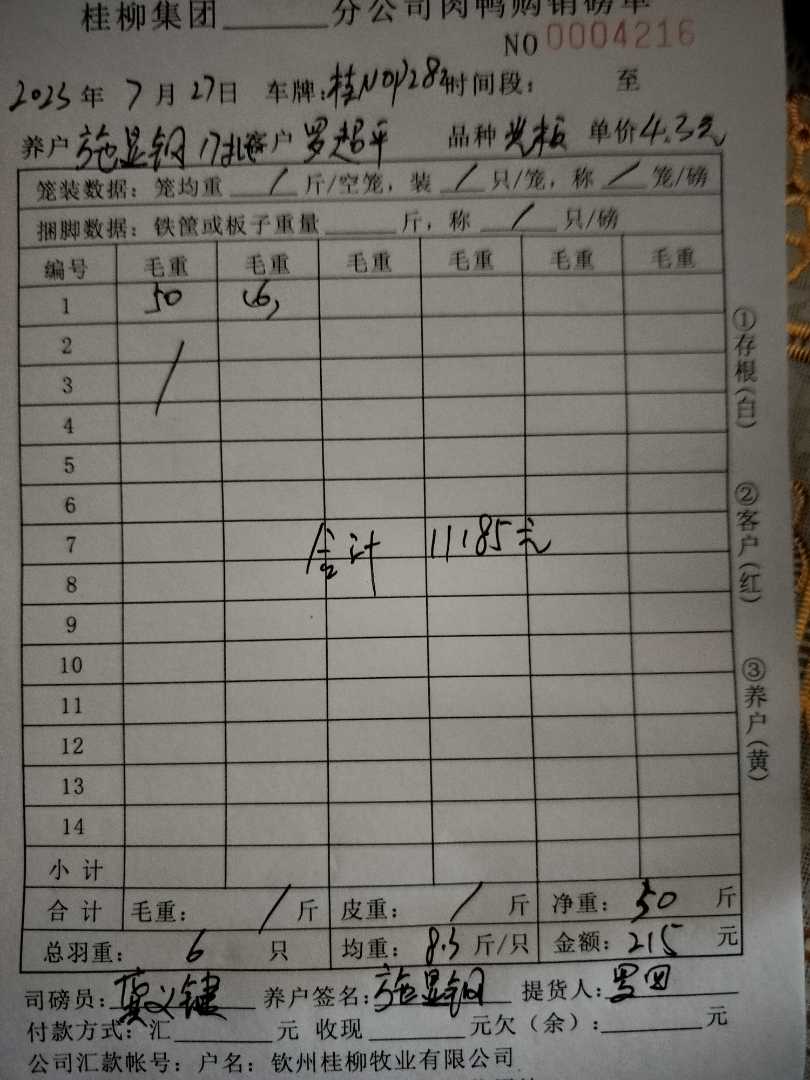 桂柳集团______分公司肉鸭购销磅单
NO 0004216
2025年 7月 27日 车牌:桂N 时间段: 至
养户 施显钢 客户 罗超平 品种 单价4.3元
笼装数据: 笼均重 / 斤/空笼, 装 / 只/笼, 称 / 笼/磅
捆脚数据: 铁筐或板子重量______斤, 称 / 只/磅
编号 毛重 毛重 毛重 毛重 毛重 毛重
1 50 (6)
2
3 /
4
5
6
7 合计 11185元
8
9
10
11
12
13
14
小计
合计 毛重: / 斤 皮重: / 斤 净重: 50 斤
总羽重: 6 只 均重: 8.3 斤/只 金额: 215 元
司磅员: 养户签名: 施显钢 提货人: 罗
付款方式: 汇______元 收现______元欠(余):______元
公司汇款帐号: 户名: 钦州桂柳牧业有限公司
①存根(白)
②客户(红)
③养户(黄)